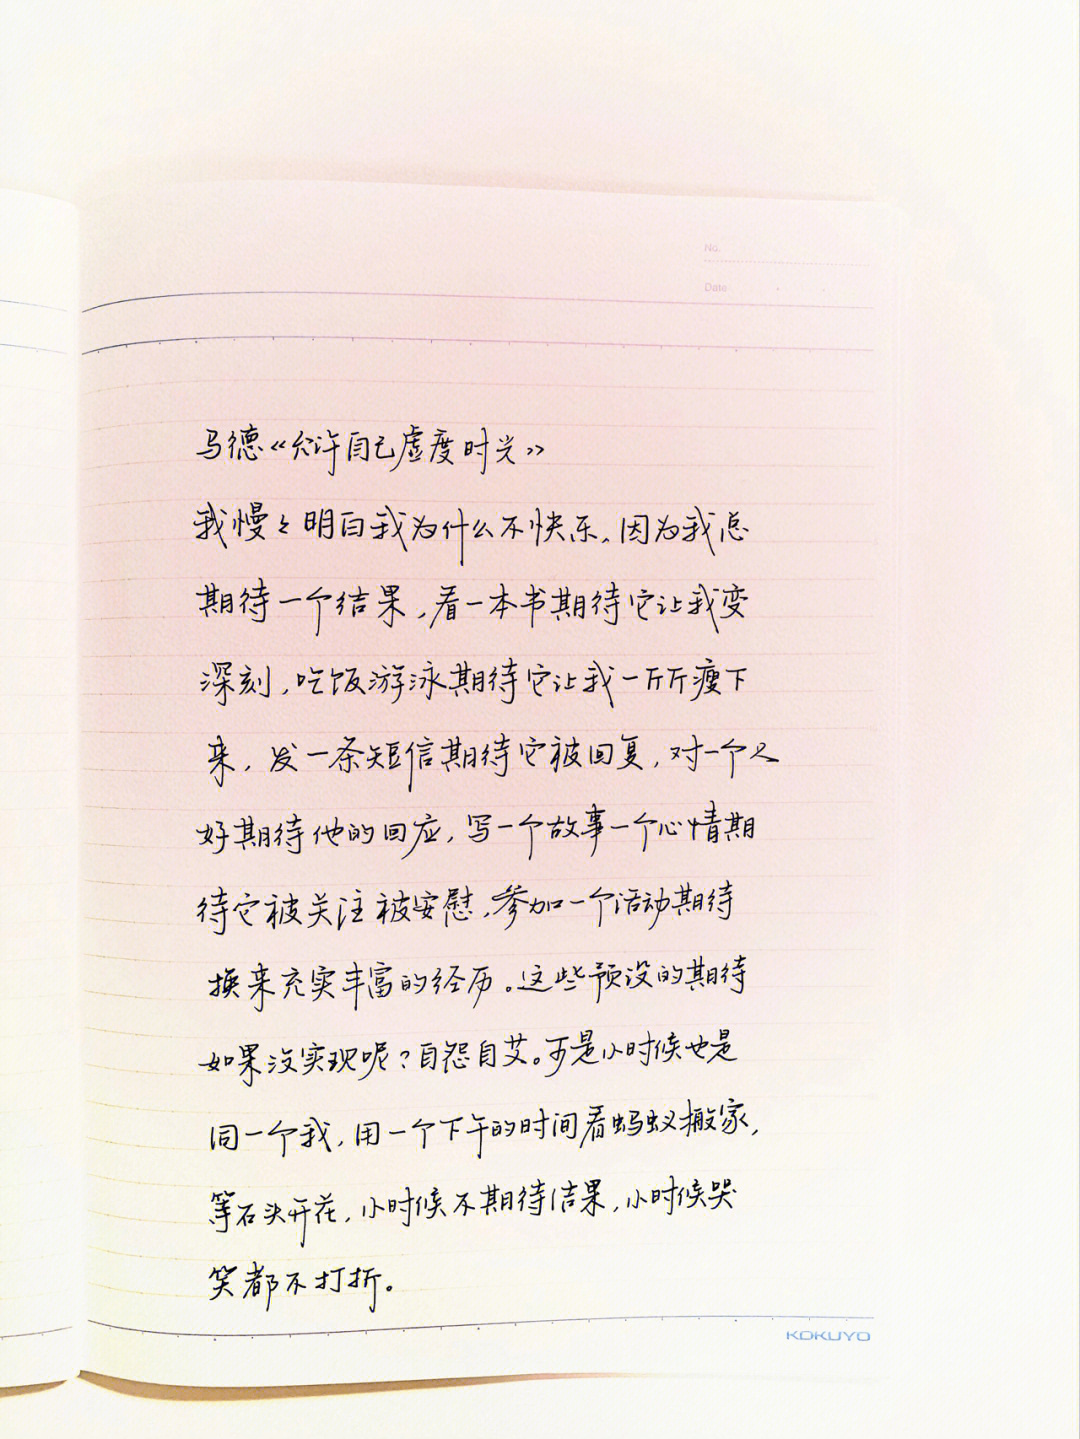 No.
Date
马德《允许自己虚度时光》
我慢々明白我为什么不快乐、因为我总
期待一个结果，看一本书期待它让我变
深刻，吃饭游泳期待它让我一斤斤瘦下
来，发一条短信期待它被回复，对一个人
好期待他的回应，写一个故事一个心情期
待它被关注被安慰，参加一个活动期待
换来充实丰富的经历。这些预设的期待
如果没实现呢？自怨自艾。可是小时候也是
同一个我，用一个下午的时间看蚂蚁搬家，
等石头开花，小时候不期待结果，小时候哭
笑都不打折。
KOKUYO